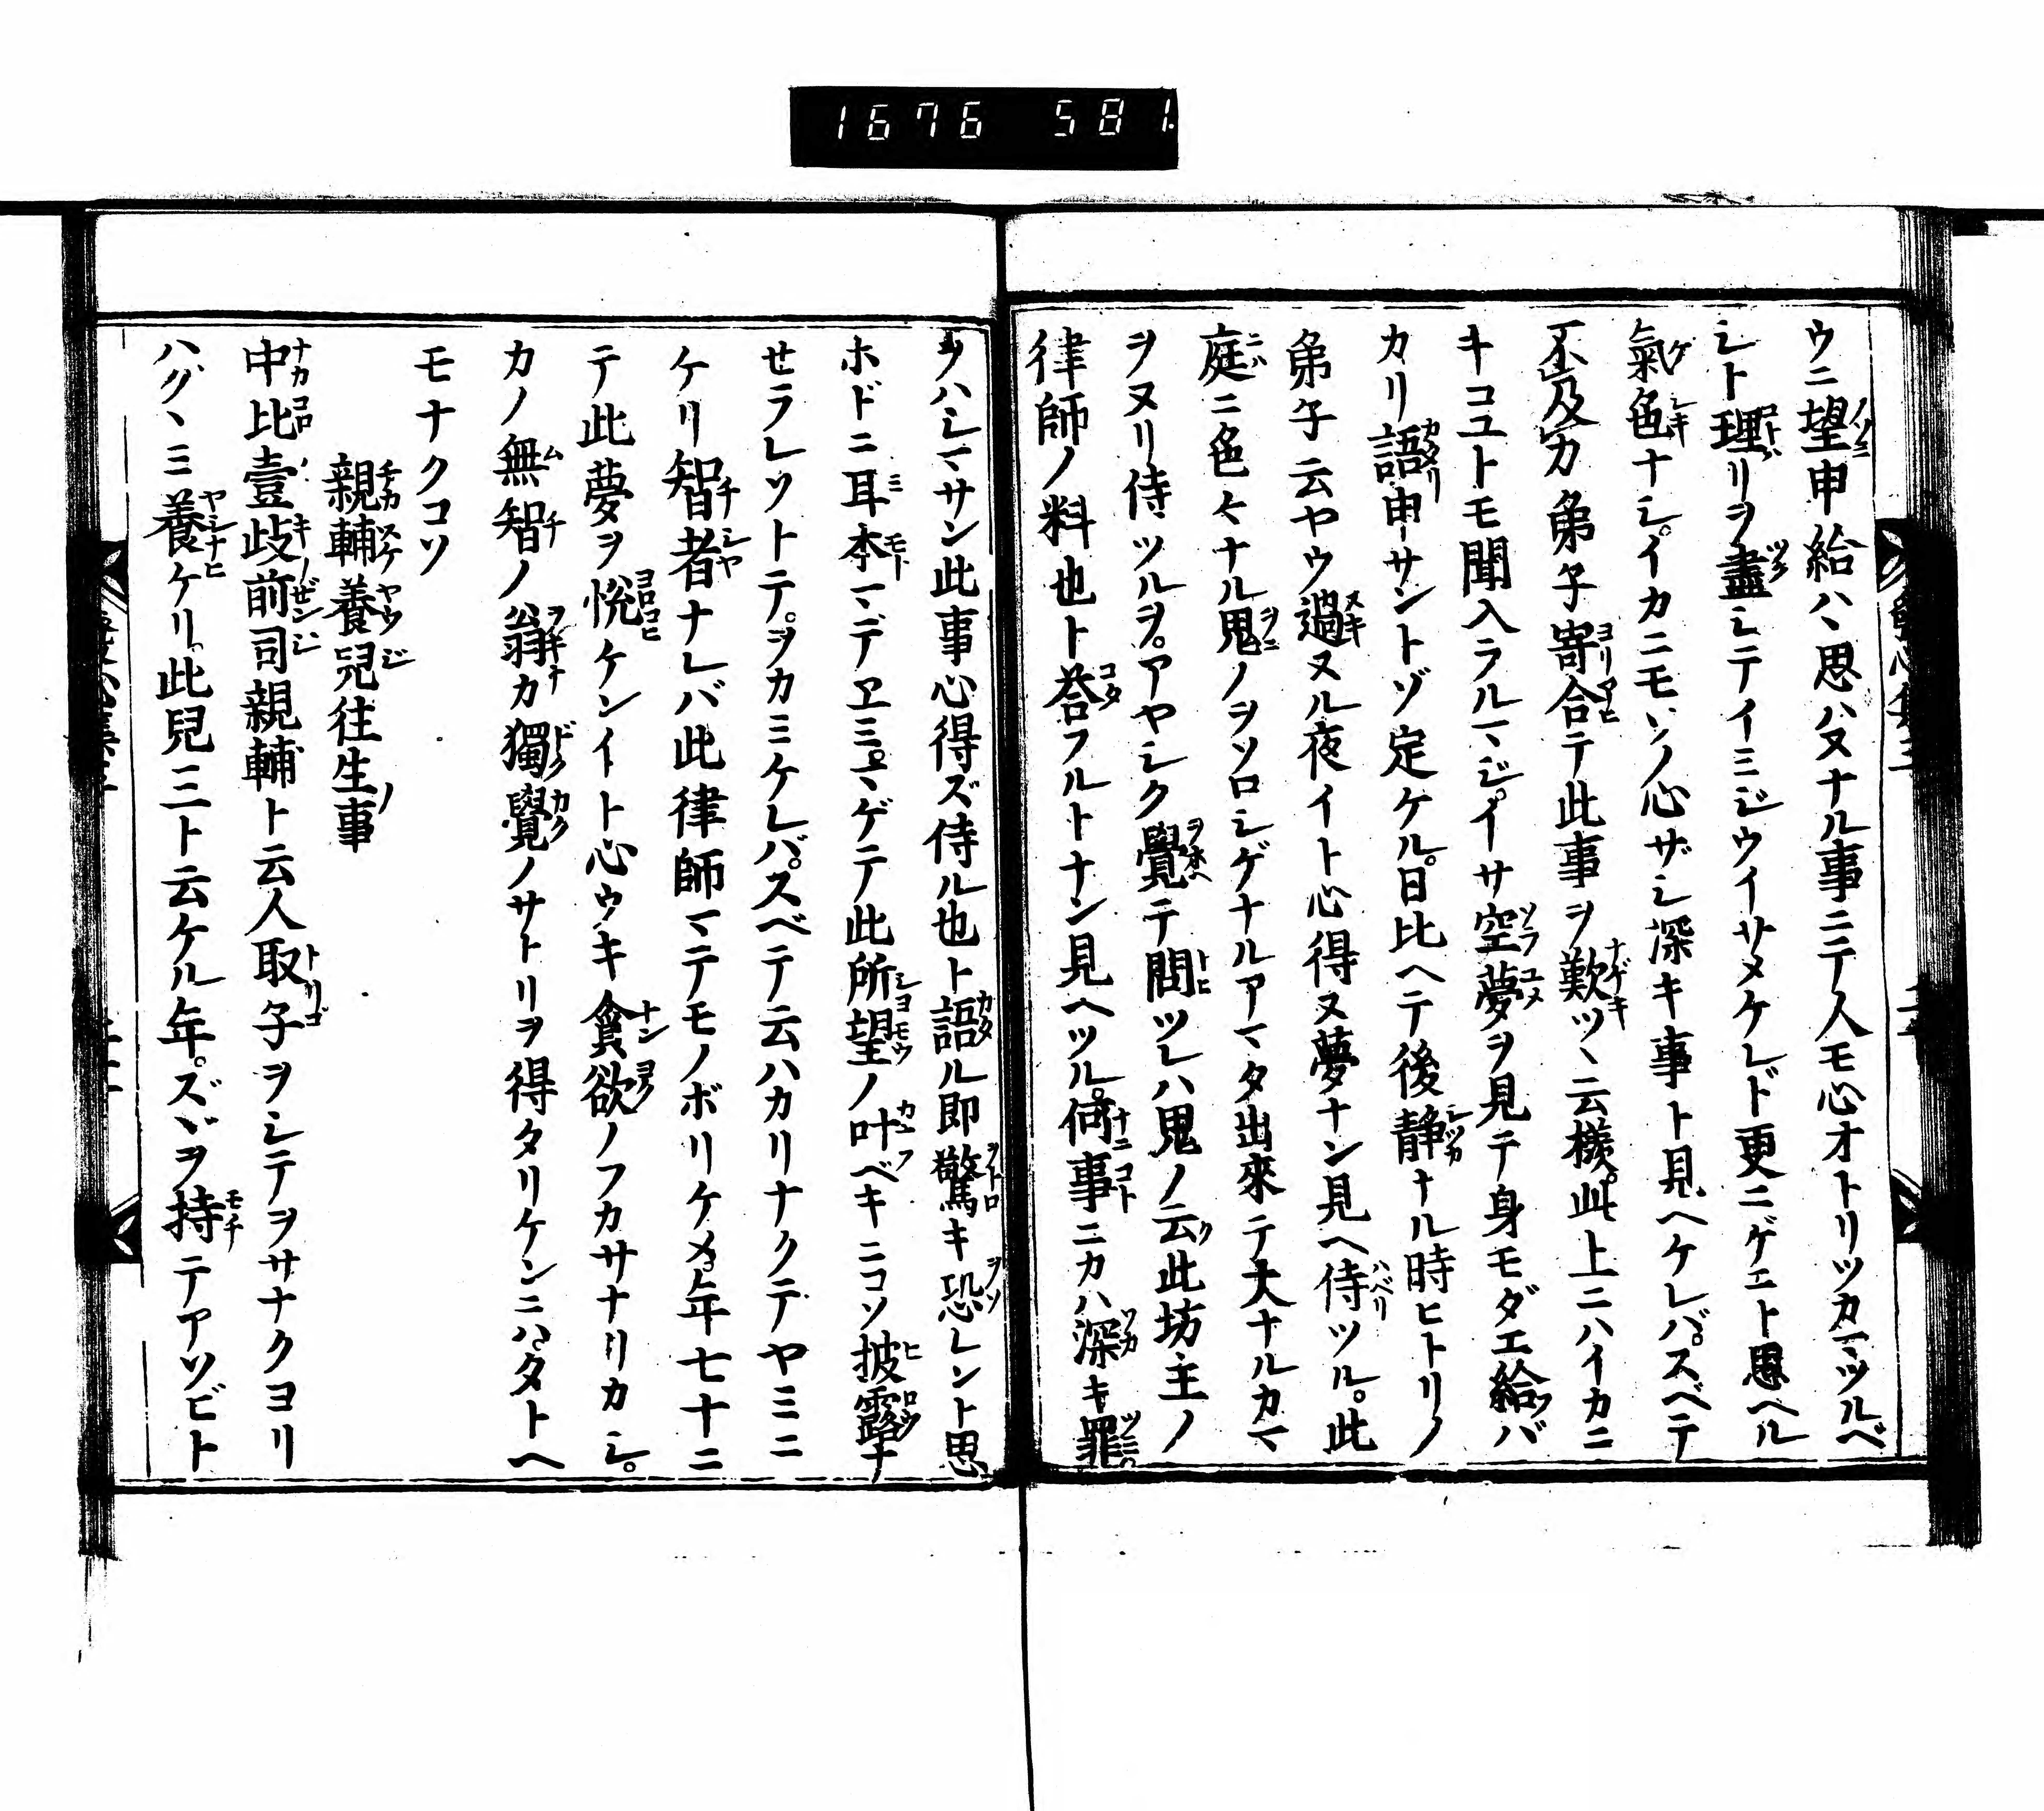 1676 581.
ウニ望申給ハヽ思ハヌナル事ニテ人モ心オトリツカマツルベ
シト理リヲ盡シテイミジウイサメケレド更ニゲニト思ヘル
氣色ナシ。イカニモソノ心ザシ深キ事ト見ヘケレバ。スベテ
不及力弟子寄合テ此事ヲ歎ツヽ云樣。此上ニハイカニ
キコユトモ聞入ラルマジ。イサ空夢ヲ見テ身モダエ給バ
カリ語申サントゾ定ケル。日比ヘテ後靜ナル時ヒトリノ
弟子云ヤウ過ヌル夜イト心得ヌ夢ナン見ヘ侍ツル。此
庭ニ色々ナル鬼ノヲソロシゲナルアマタ出來テ大ナルカマ
ヲヌリ侍ツルヲ。アヤシク覺テ問ツレハ鬼ノ云此坊主ノ
律師ノ料也ト荅フルトナン見ヘツル。何事ニカハ深キ罪
ヲハシマサン此事心得ズ侍ル也ト語ル即驚キ恐レント思
ホドニ耳本マデヱミマゲテ此所望ノ叶ベキニコソ披露ナ
せラレソトテ。ヲカミケレバ。スベテ云ハカリナクテヤミニ
ケリ智者ナレバ此律師マテモノボリケメ年七十ニ
テ此夢ヲ悅ケンイト心ウキ貪欲ノフカサナリカシ。
カノ無智ノ翁カ獨覺ノサトリヲ得タリケンニハタトヘ
モナクコソ
親輔養兒往生事
中比壹岐前司親輔ト云人取子ヲシテヲサナクヨリ
ハグヽミ養ケリ。此兒三ト云ケル年。ズヾヲ持テアソビト